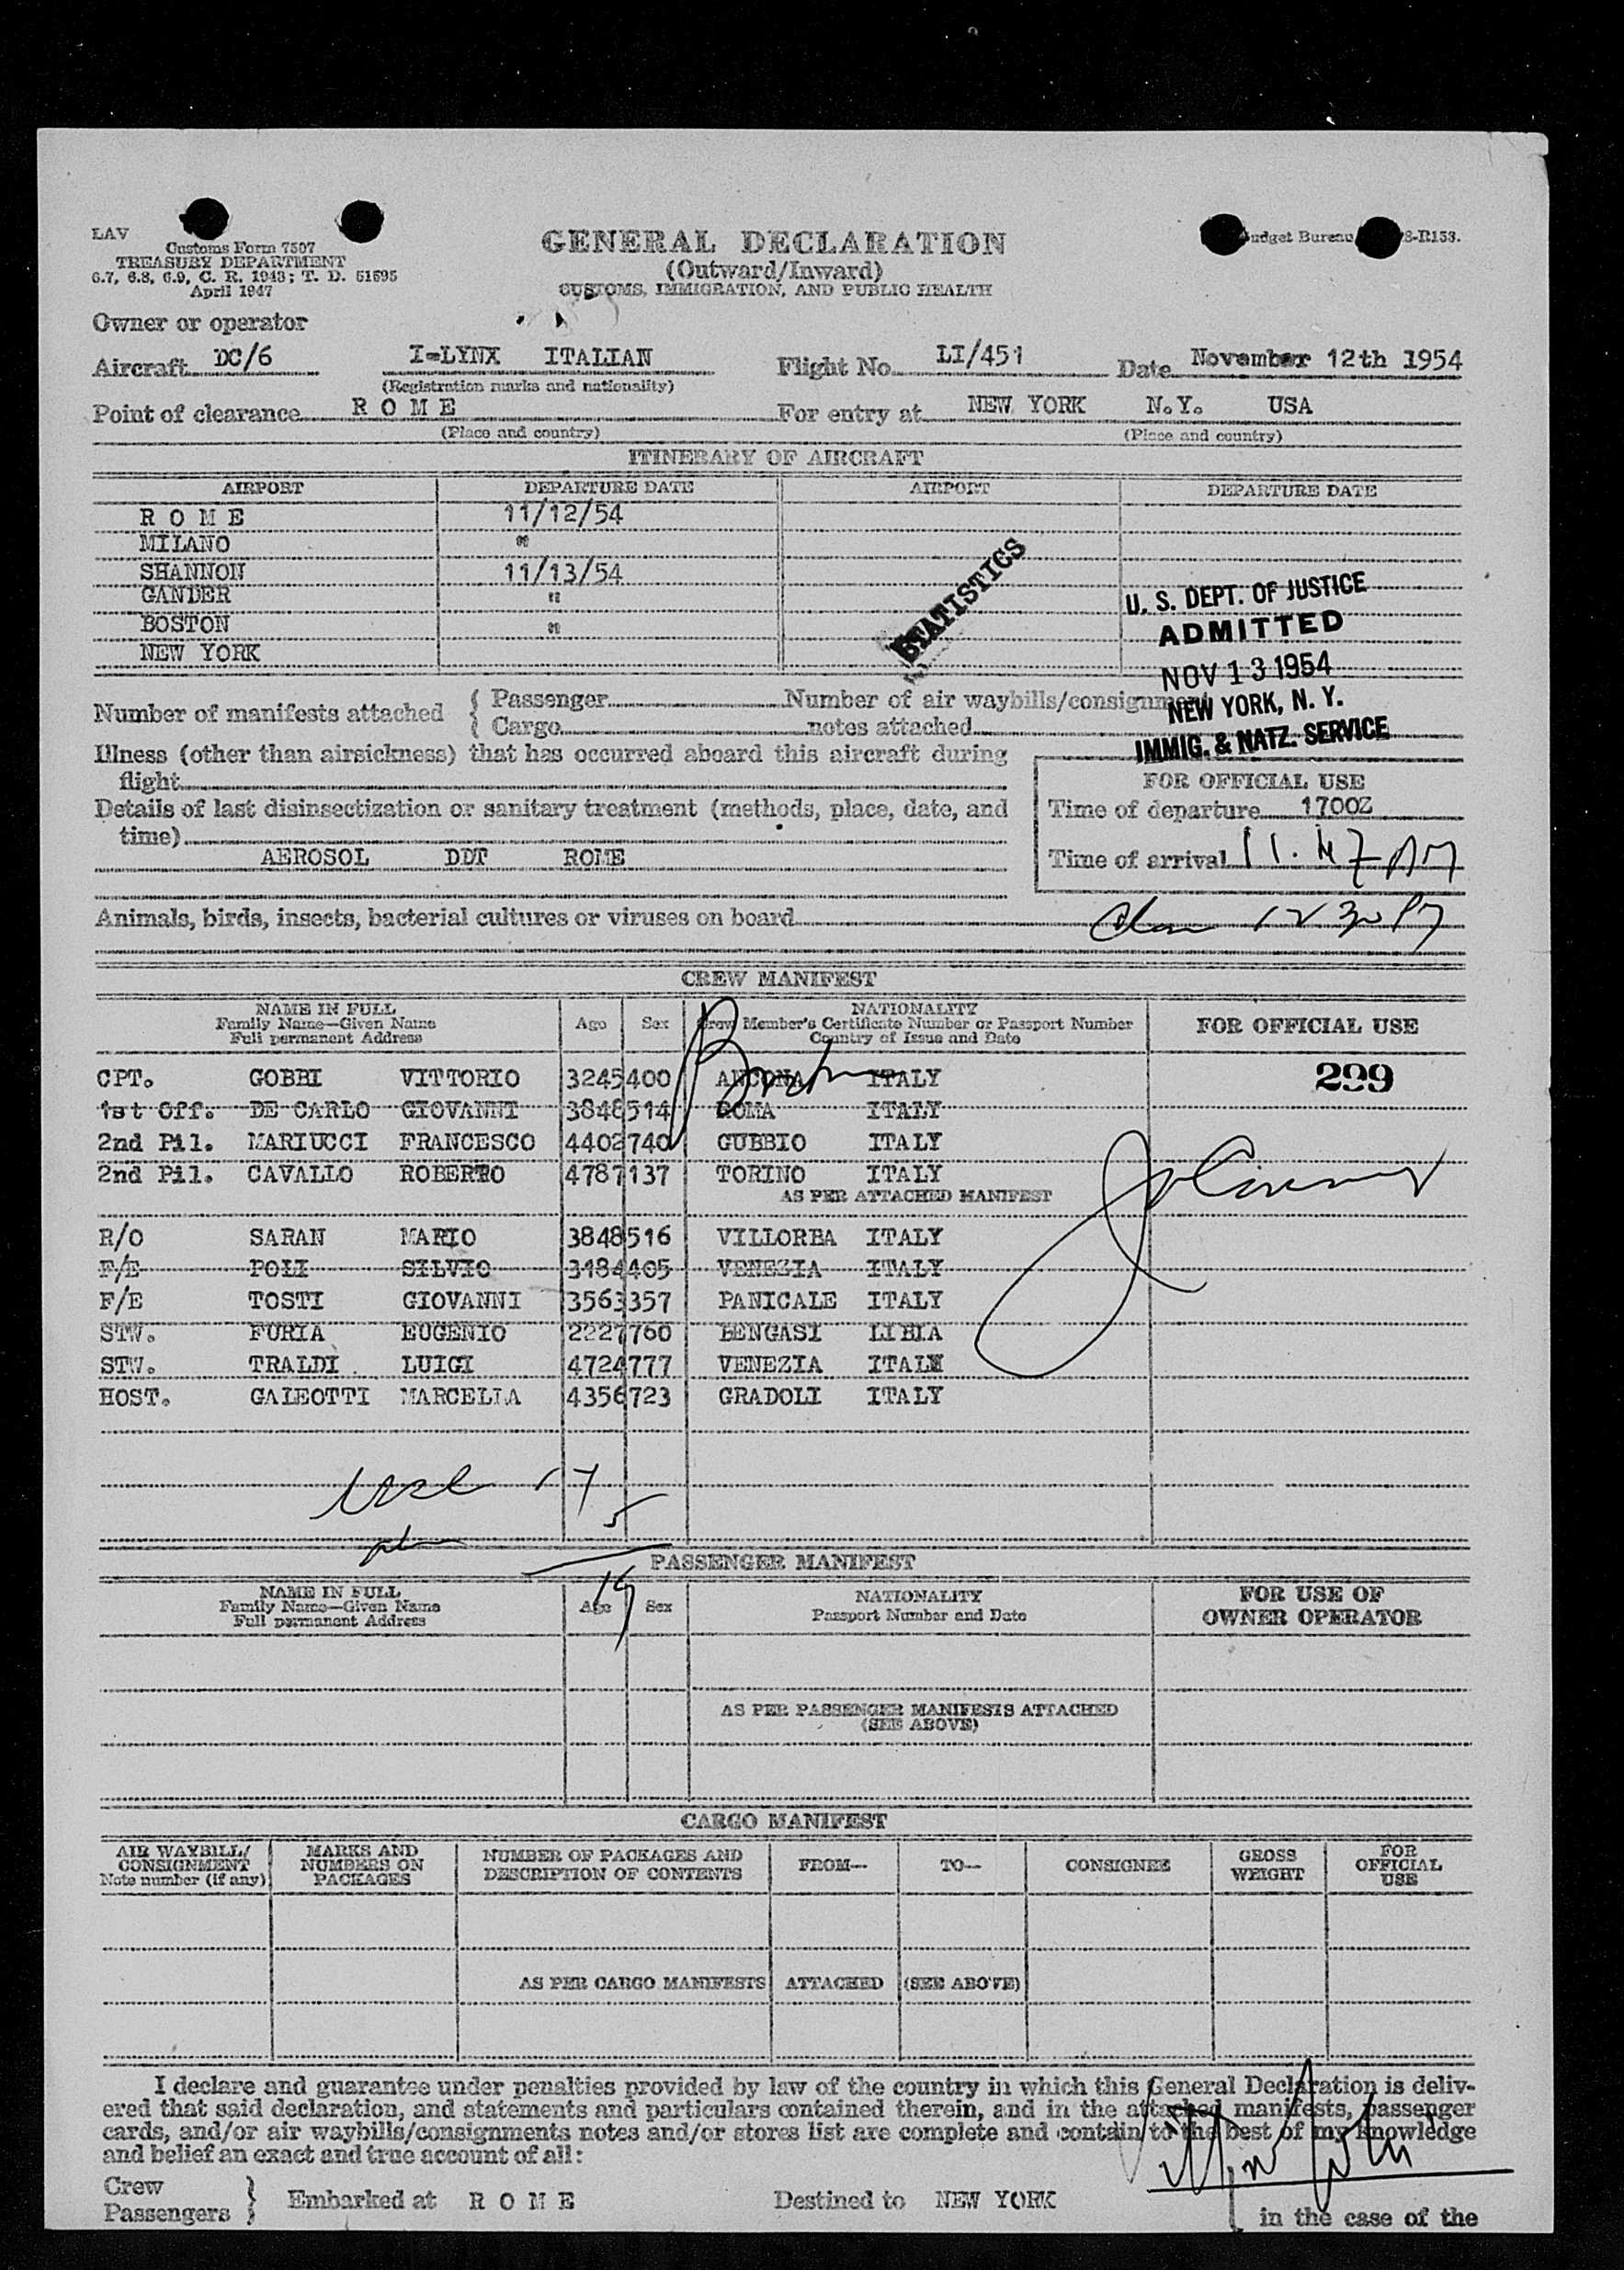 LAV
Customs Form 7507
TREASURY DEPARTMENT
6.7, 6.8, 6.9, C. R. 1943; T. D. 51595
April 1947
GENERAL DECLARATION
(Outward/Inward)
CUSTOMS, IMMIGRATION, AND PUBLIC HEALTH
udget Bureau 8-R153.
Owner or operator
Aircraft DC/6 I-LYNX ITALIAN Flight No. LI/451 Date November 12th 1954
(Registration marks and nationality)
Point of clearance R O M E For entry at NEW YORK N.Y. USA
(Place and country) (Place and country)
ITINERARY OF AIRCRAFT
AIRPORT DEPARTURE DATE AIRPORT DEPARTURE DATE
R O M E 11/12/54
MILANO "
SHANNON 11/13/54
GANDER "
BOSTON "
NEW YORK
STATISTICS
U. S. DEPT. OF JUSTICE
ADMITTED
NOV 13 1954
NEW YORK, N. Y.
IMMIG. & NATZ. SERVICE
Number of manifests attached { Passenger Number of air waybills/consignment
{ Cargo notes attached
Illness (other than airsickness) that has occurred aboard this aircraft during
flight
Details of last disinsectization or sanitary treatment (methods, place, date, and
time)
AEROSOL DDT ROME
FOR OFFICIAL USE
Time of departure 1700Z
Time of arrival 11.47 AM
Animals, birds, insects, bacterial cultures or viruses on board
CREW MANIFEST
NAME IN FULL
Family Name—Given Name
Full permanent Address
Age Sex
NATIONALITY
Crew Member's Certificate Number or Passport Number
Country of Issue and Date
FOR OFFICIAL USE
CPT. GOBBI VITTORIO 3245400 ANCONA ITALY 299
1st Off. DE CARLO GIOVANNI 3848514 ROMA ITALY
2nd Pil. MARIUCCI FRANCESCO 4402740 GUBBIO ITALY
2nd Pil. CAVALLO ROBERTO 4787137 TORINO ITALY
AS PER ATTACHED MANIFEST
R/O SARAN MARIO 3848516 VILLORBA ITALY
F/E POLI SILVIO 3184405 VENEZIA ITALY
F/E TOSTI GIOVANNI 3563357 PANICALE ITALY
STW. FURIA EUGENIO 2227760 BENGASI LIBIA
STW. TRALDI LUIGI 4724777 VENEZIA ITAL
HOST. GALEOTTI MARCELLA 4356723 GRADOLI ITALY
17
5
PASSENGER MANIFEST
NAME IN FULL
Family Name—Given Name
Full permanent Address
Age Sex
NATIONALITY
Passport Number and Date
FOR USE OF
OWNER OPERATOR
AS PER PASSENGER MANIFESTS ATTACHED
(SEE ABOVE)
CARGO MANIFEST
AIR WAYBILL/
CONSIGNMENT
Note number (if any)
MARKS AND
NUMBERS ON
PACKAGES
NUMBER OF PACKAGES AND
DESCRIPTION OF CONTENTS
FROM—
TO—
CONSIGNEE
GROSS
WEIGHT
FOR
OFFICIAL
USE
AS PER CARGO MANIFESTS ATTACHED (SEE ABOVE)
I declare and guarantee under penalties provided by law of the country in which this General Declaration is deliv-
ered that said declaration, and statements and particulars contained therein, and in the attached manifests, passenger
cards, and/or air waybills/consignments notes and/or stores list are complete and contain to the best of my knowledge
and belief an exact and true account of all:
Crew
Passengers } Embarked at R O M E Destined to NEW YORK
in the case of the